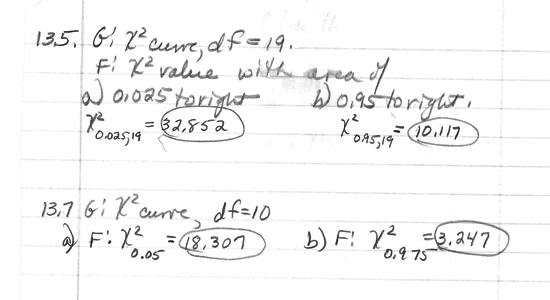 13.5. G: χ² curve, df = 19.
F: χ² value with area of
a) 0.025 to right b) 0.95 to right.
χ²0.025,19 = 32.852 χ²0.95,19 = 10.117
13.7 G: χ² curve, df=10
a) F: χ²0.05 = 18.307 b) F: χ²0.975 = 3.247